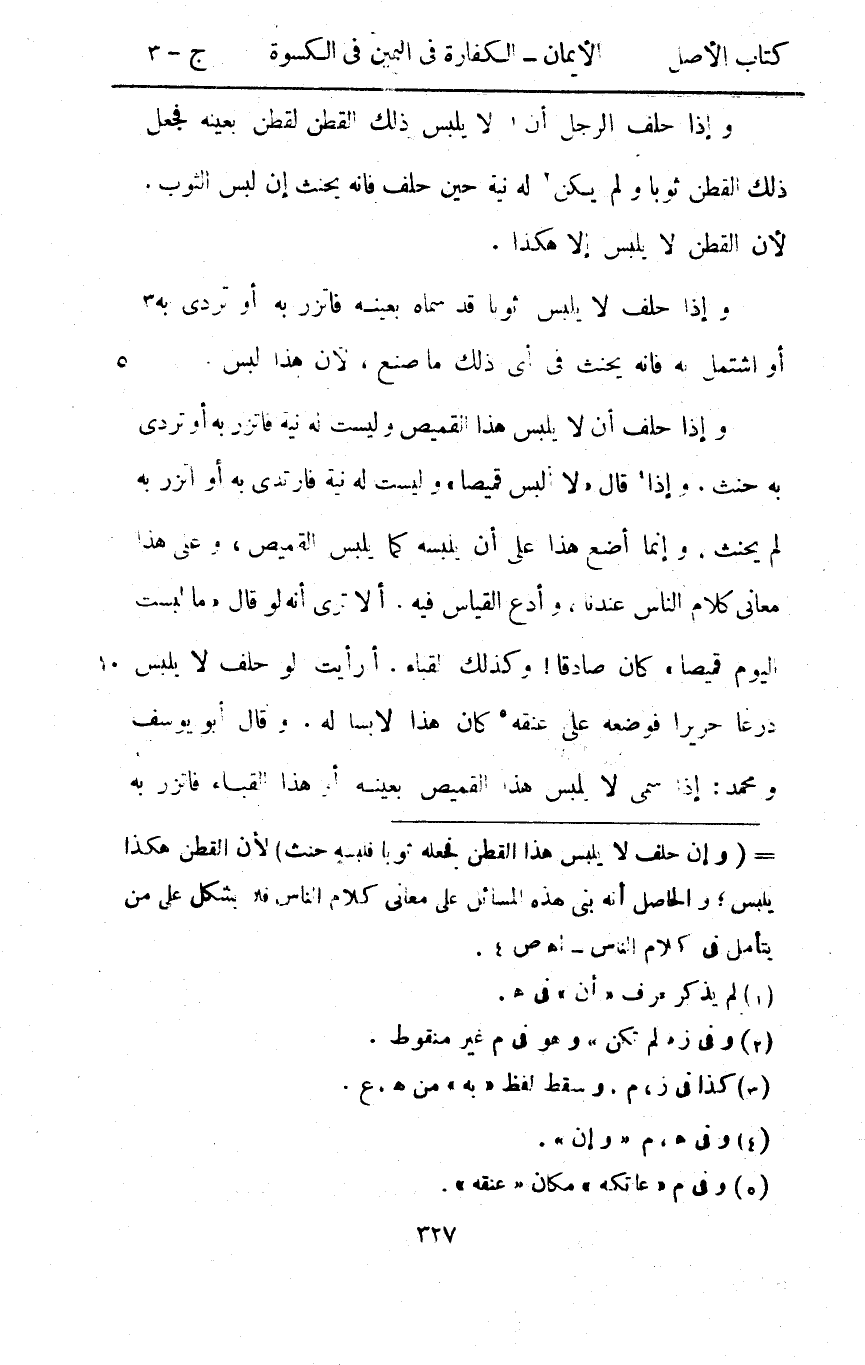 كتاب الأصل الأيمان – الكفارة فى اليمين فى الكسوة ج – ٣
و إذا حلف الرجل أن ١ لا يلبس ذلك القطن لقطن بعينه فجعل
ذلك القطن ثوبا و لم يكن ٢ له نية حين حلف فانه يحنث إن لبس الثوب .
لأن القطن لا يلبس إلا هكذا .
و إذا حلف لا يلبس ثوبا قد سماه بعينه فاتزر به أو تردى به٣
أو اشتمل به فانه يحنث فى أى ذلك ما صنع ، لأن هذا لبس . ٥
و إذا حلف أن لا يلبس هذا القميص و ليست له نية فاتزر به أو تردى
به حنث . و إذا٤ قال « لا ألبس قميصا » و ليست له نية فارتدى به أو اتزر به
لم يحنث . و إنما أضع هذا على أن يلبسه كما يلبس القميص ، و على هذا
معانى كلام الناس عندنا ، و أدع القياس فيه . ألا ترى أنه لو قال « ما لبست
اليوم قميصا » كان صادقا ! وكذلك القباء . أ رأيت لو حلف لا يلبس ١٠
درعا حريرا فوضعه على عنقه٥ كان هذا لابسا له . و قال أبو يوسف
و محمد : إذا سمى لا يلبس هذا القميص بعينه أو هذا القباء فاتزر به
= ( و إن حلف لا يلبس هذا القطن فجعله ثوبا فلبسه حنث ) لأن القطن هكذا
يلبس ؛ و الحاصل أنه بنى هذه المسائل على معانى كلام الناس فلا يشكل على من
يتأمل فى كلام الناس – اه ص ٤ .
(١) لم يذكر حرف « أن » فى ه .
(٢) و فى ز « لم تكن » و هو فى م غير منقوط .
(٣) كذا فى ز ، م . و سقط لفظ « به » من ه ، ع .
(٤) و فى ه ، م « و إن » .
(٥) و فى م « عاتكه » مكان « عنقه » .
٣٢٧